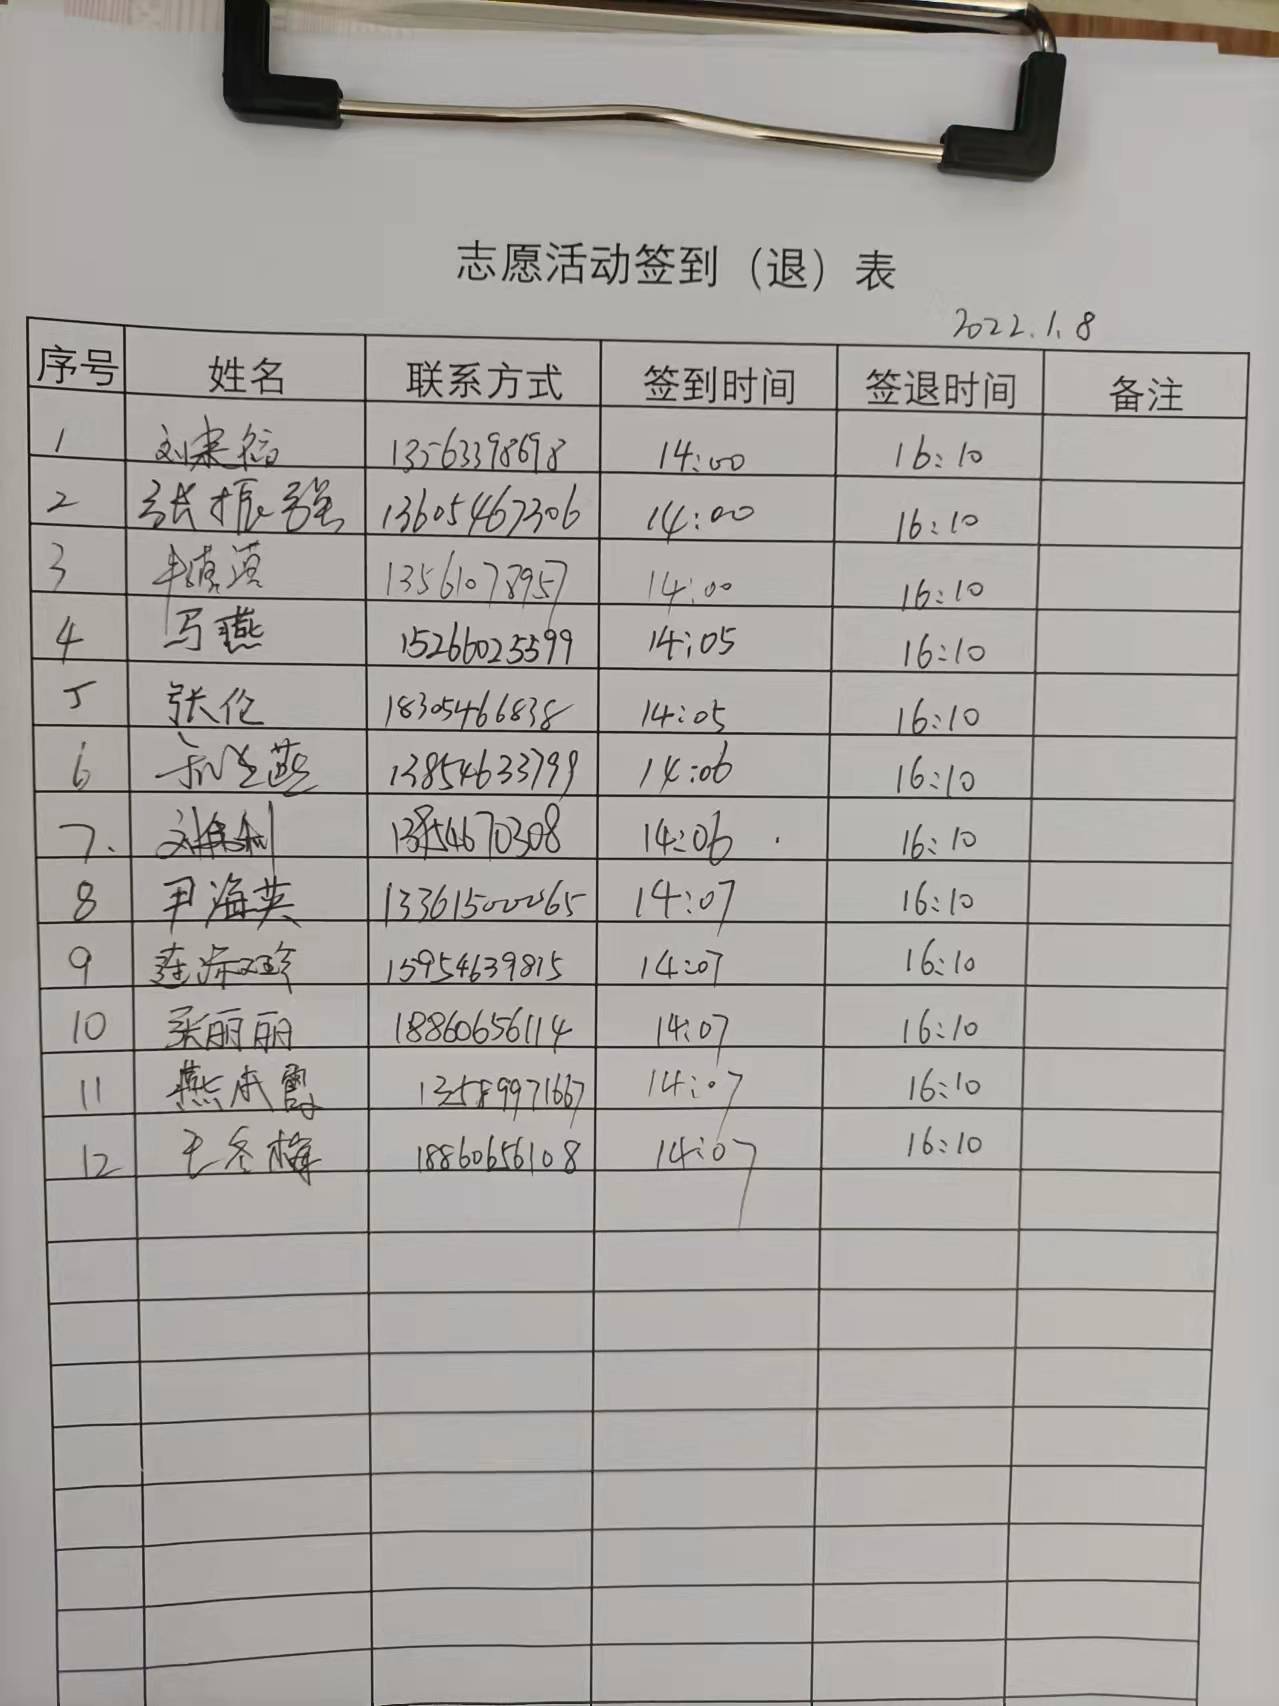 志愿活动签到（退）表
2022.1.8
序号 姓名 联系方式 签到时间 签退时间 备注
1 13563398698 14:00 16:10
2 张振强 13605467306 14:00 16:10
3 13561078957 14:00 16:10
4 马燕 15266025599 14:05 16:10
5 张伦 18305466838 14:05 16:10
6 13854633799 14:06 16:10
7. 14:06 16:10
8 尹海英 133615000065 14:07 16:10
9 15954639815 14:07 16:10
10 张丽丽 18860656114 14:07 16:10
11 13589971667 14:07 16:10
12 王冬梅 18860656108 14:07 16:10